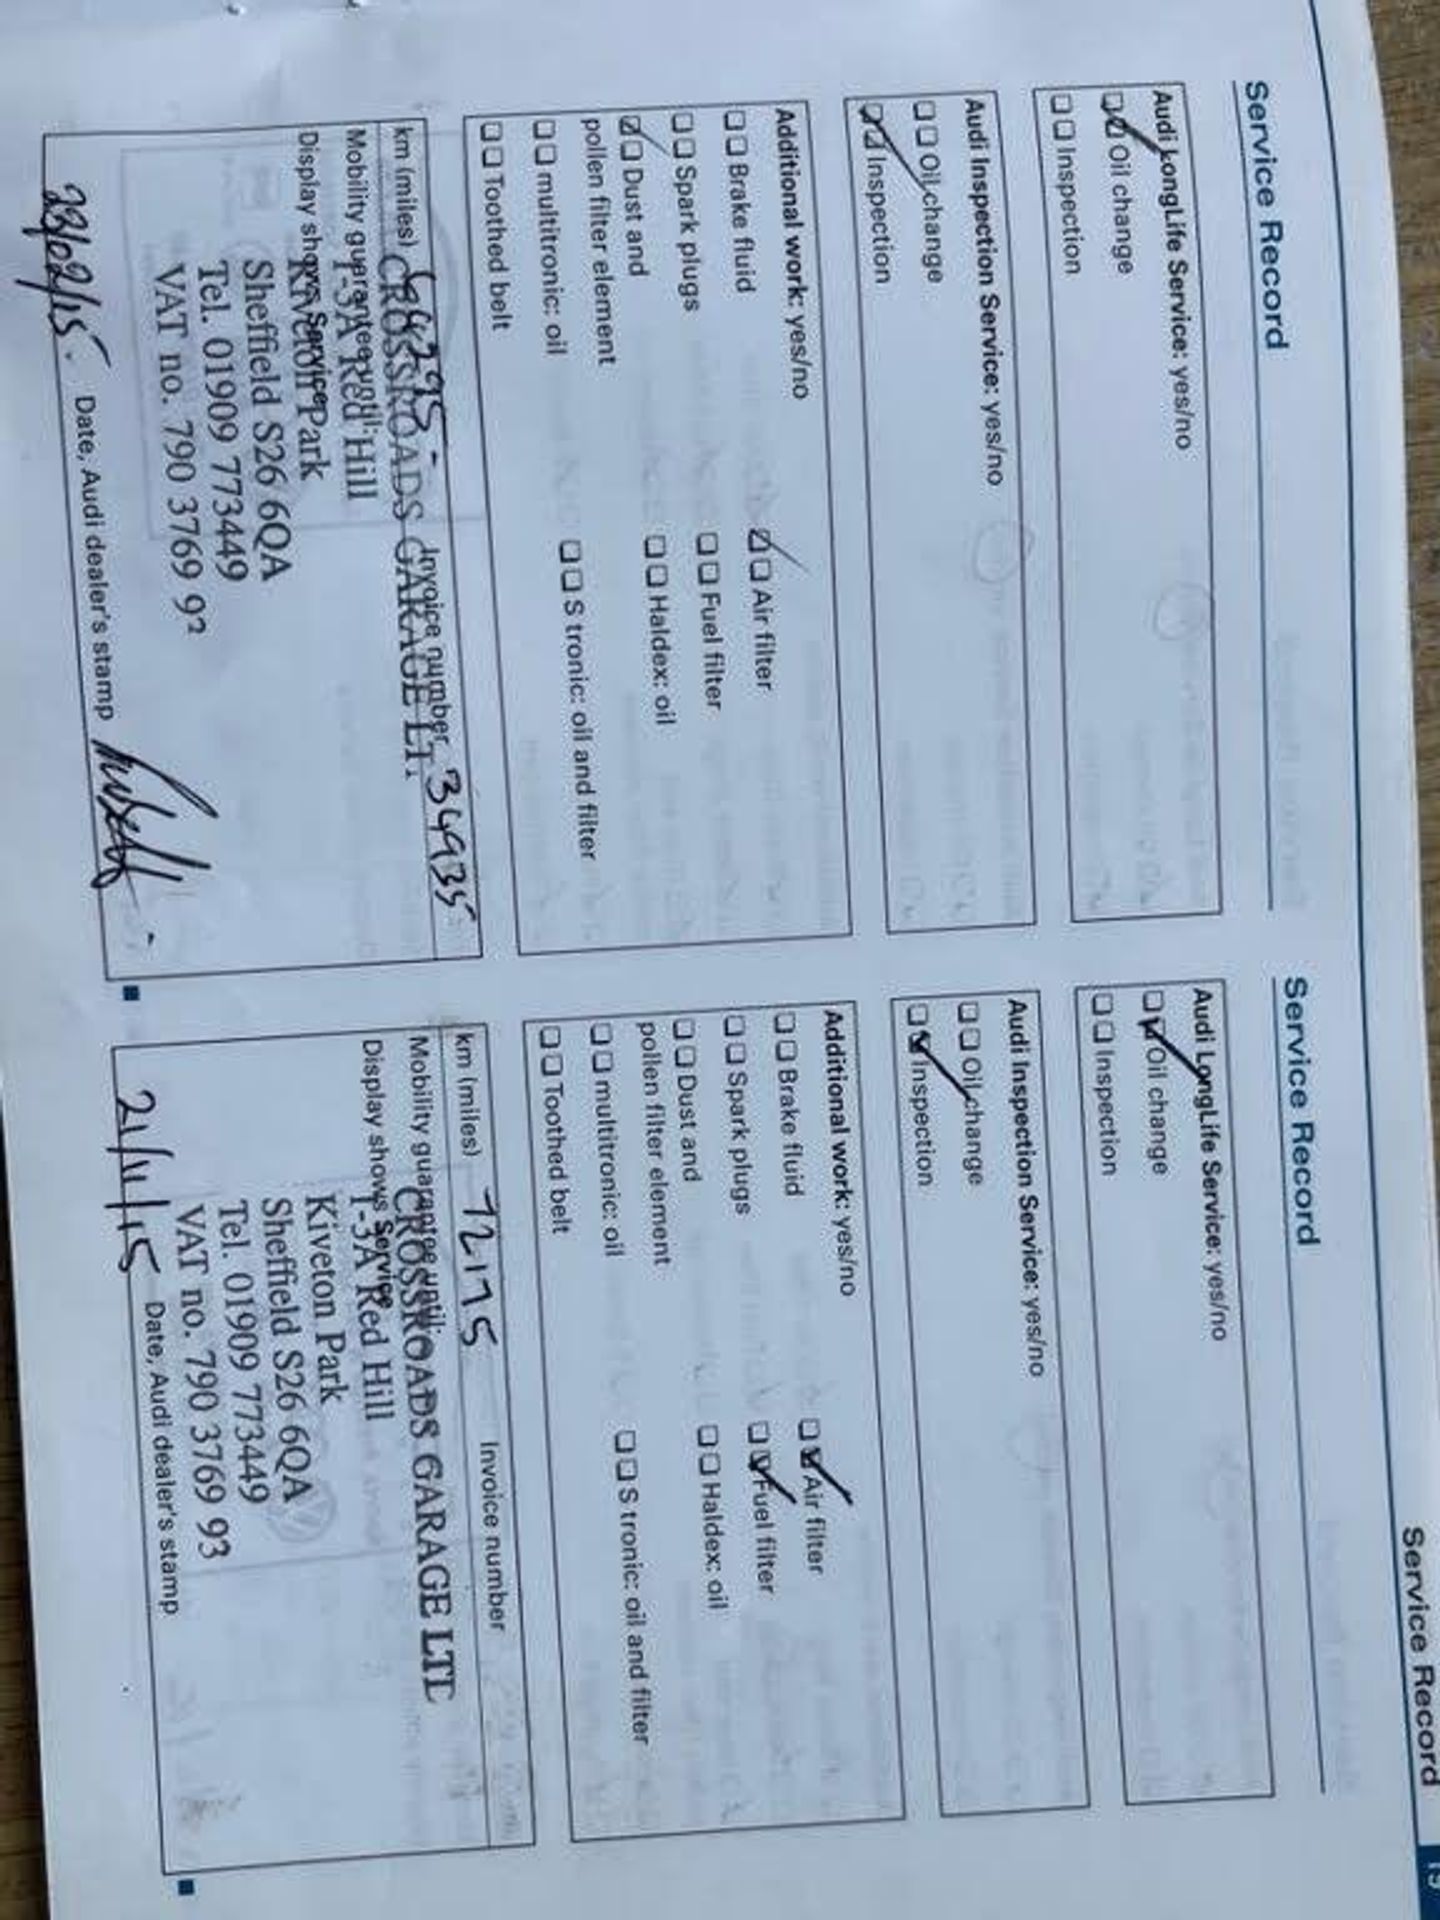 Service Record
19
Service Record
Audi LongLife Service: yes/no
Oil change
Inspection
Audi Inspection Service: yes/no
Oil change
Inspection
Additional work: yes/no
Brake fluid
Air filter
Spark plugs
Fuel filter
Dust and
pollen filter element
Haldex: oil
multitronic: oil
S tronic: oil and filter
Toothed belt
km (miles)
Invoice number 34935
Mobility guarantee until:
Display shows Service
CROSSROADS GARAGE LT
1-3A Red Hill
Kiveton Park
Sheffield S26 6QA
Tel. 01909 773449
VAT no. 790 3769 93
23/02/15.
Date, Audi dealer's stamp
Service Record
Audi LongLife Service: yes/no
Oil change
Inspection
Audi Inspection Service: yes/no
Oil change
Inspection
Additional work: yes/no
Brake fluid
Air filter
Spark plugs
Fuel filter
Dust and
pollen filter element
Haldex: oil
multitronic: oil
S tronic: oil and filter
Toothed belt
km (miles) 72175
Invoice number
Mobility guarantee until:
Display shows Service
CROSSROADS GARAGE LTD
1-3A Red Hill
Kiveton Park
Sheffield S26 6QA
Tel. 01909 773449
VAT no. 790 3769 93
21/11/15
Date, Audi dealer's stamp